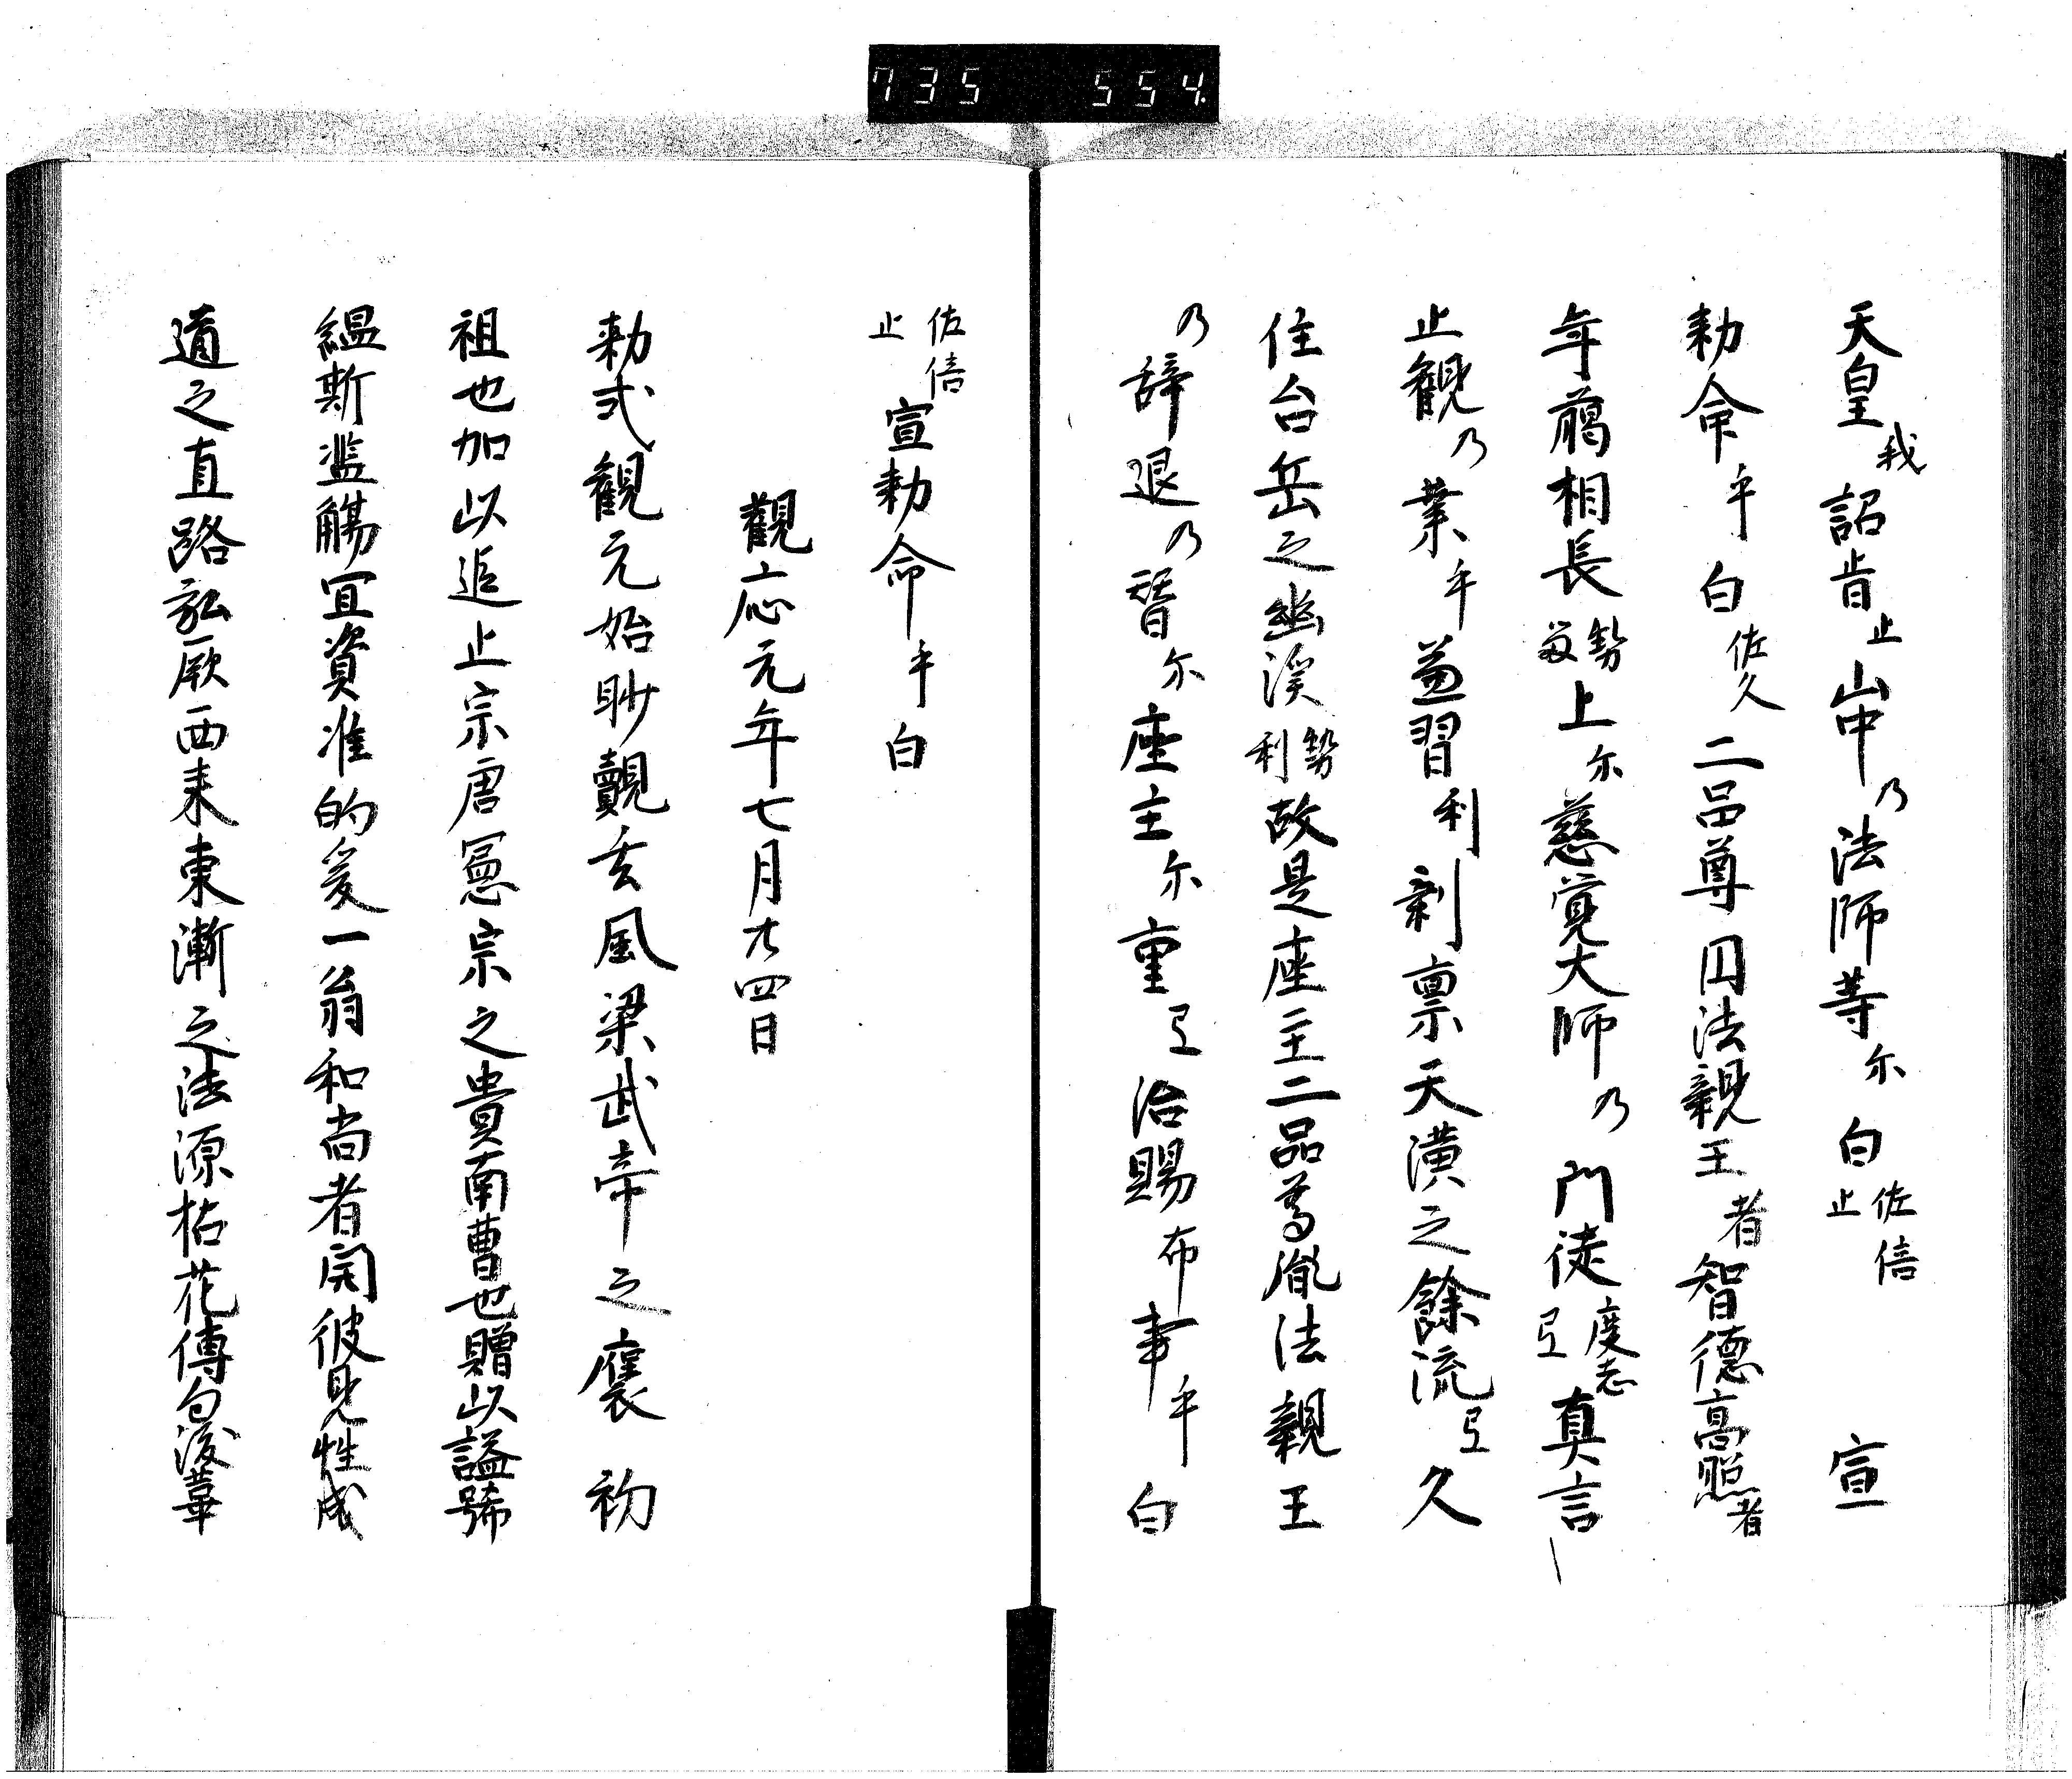 735 554
天皇我詔旨止山中乃法師等尓白佐倍止宣
勅命乎白佐久二品尊円法親王者智德高照者
年﨟相長勢留上尓慈覚大師乃門徒度志弖真言
止観乃業乎益習利剰禀天潢之餘流弖久
住台岳之幽渓勢利故是座主二品尊胤法親王
乃辞退乃替尓座主尓重弖治賜布事乎白
佐倍止宣勅命乎白
觀応元年七月廿四日
勅式観元始眇覿玄風梁武帝之褒初
祖也加以追止宗唐憲宗之貴南曹也贈以謚號
緼斯濫觴宜資准的爰一翁和尚者開彼見性成
道之直路弘厥西来東漸之法源拈花傳句後葦